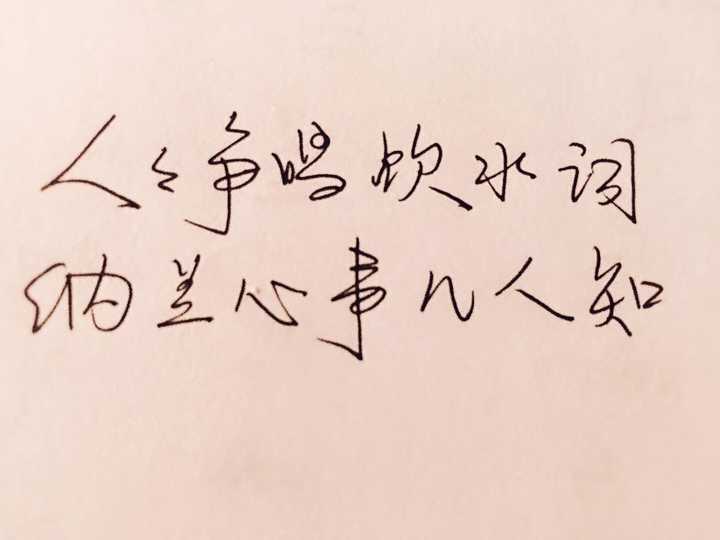 人々争唱饮水词
纳兰心事几人知